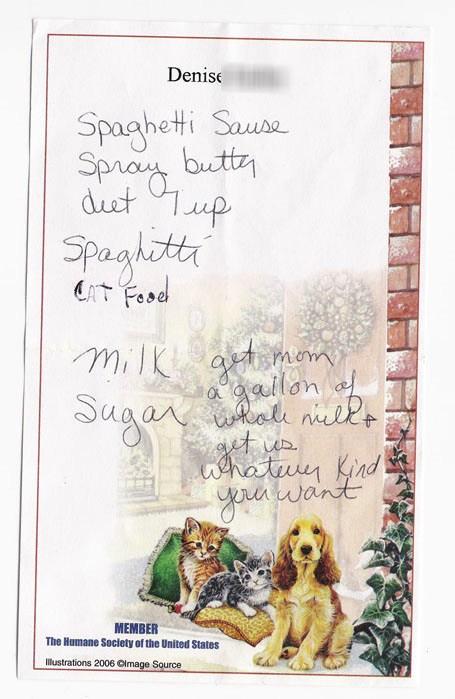 Denise
Spaghetti Sause
Spray butter
diet 7up
Spaghitti
CAT Food
Milk
Sugar
get mom
a gallon of
whole milk &
get us
whatever Kind
your want
MEMBER
The Humane Society of the United States
Illustrations 2006 ©Image Source